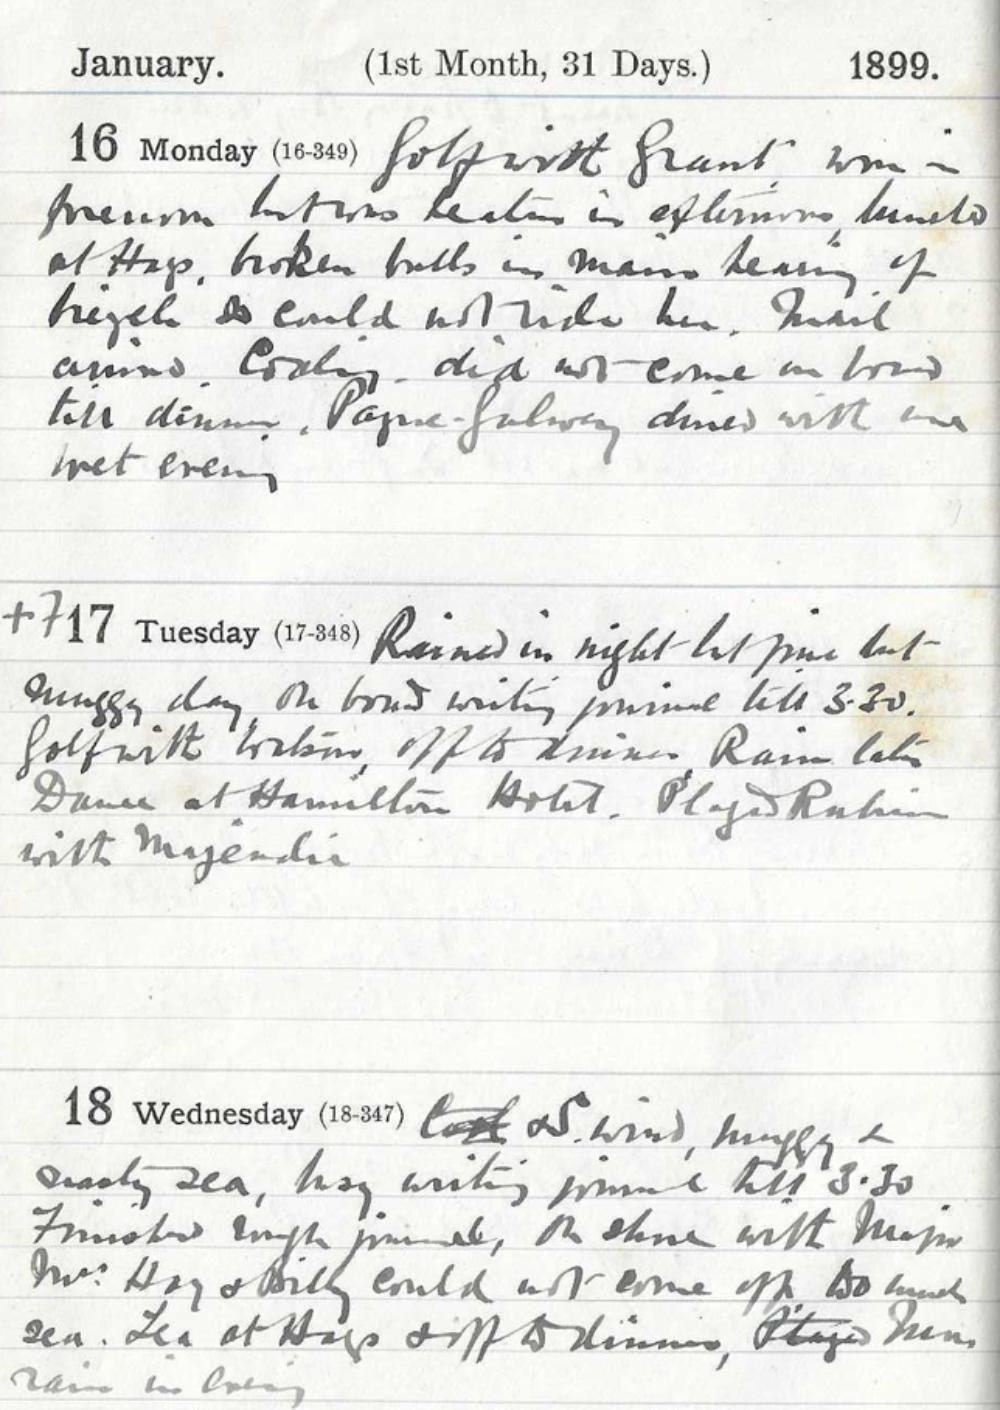 January. (1st Month, 31 Days.) 1899.
16 Monday (16-349) Golf with Grant, won in
forenoon but was beaten in afternoon, lunched
at Hays, broken balls in main bearing of
bicycle so could not ride her. Mail
arrived. Coaling. did not come on board
till dinner, Payne-Galwey dined with me
wet evening
+7 17 Tuesday (17-348) Rained in night but fine but
muggy day, on board writing journal till 3.30.
Golf with Watson, off to dinner, Rain later
Dance at Hamilton Hotel. Played
with Majendie
18 Wednesday (18-347) S. wind, muggy &
nasty sea, busy writing journal till 3.30
Finished rough journal, on shore with Major
Mrs. Hay & Billy could not come off too much
sea. Tea at Hays & off to dinner, Played
rain in evening